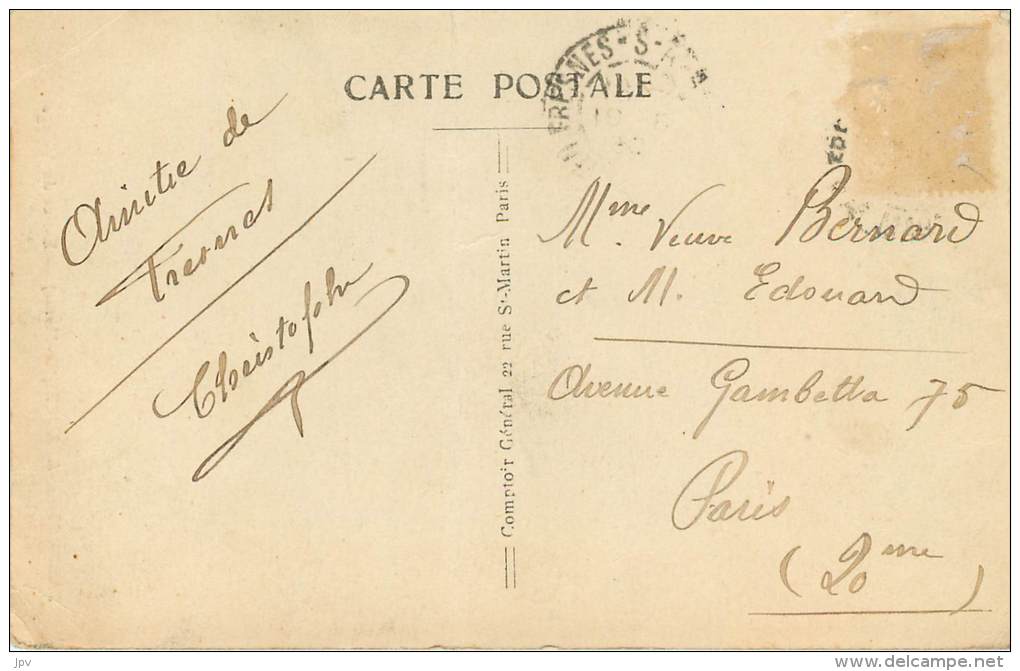 CARTE POSTALE
FRESNES-S-
Amitié de
Fresnes
Christophe
Comptoir Général 22 rue St-Martin Paris
Mme Veuve Bernard
et M. Edouard
Avenue Gambetta 75
Paris
(20me)
jpv
www.delcampe.net